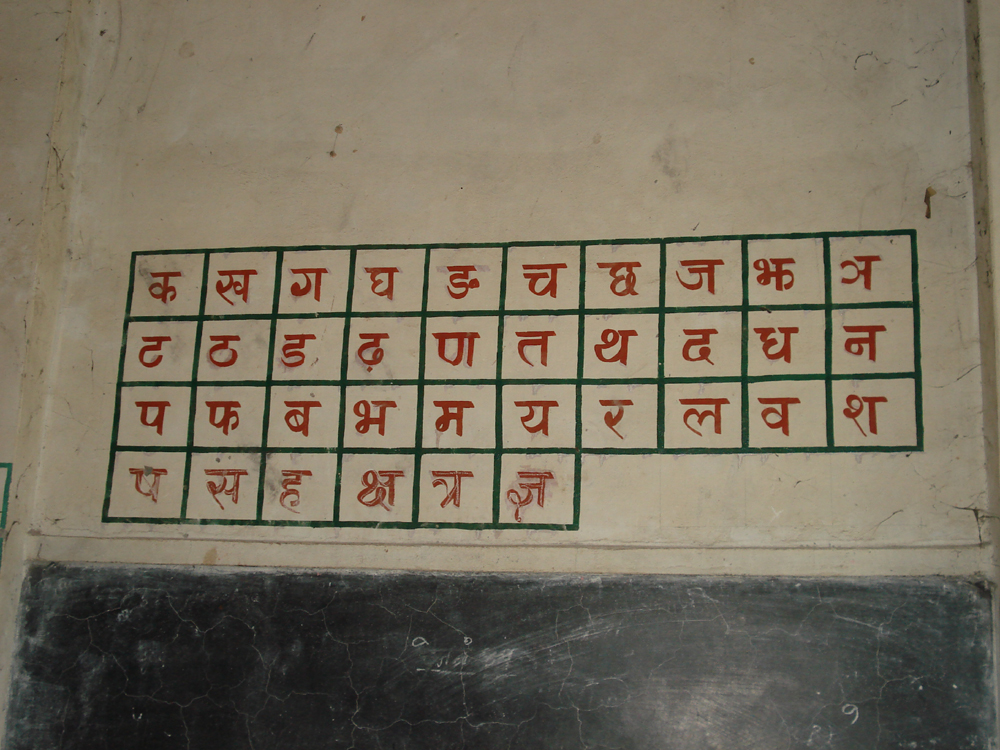 क ख ग घ ङ च छ ज झ ञ
ट ठ ड ढ़ ण त थ द घ न
प फ ब भ म य र ल व श
ष स ह क्ष त्र ज्ञ
९